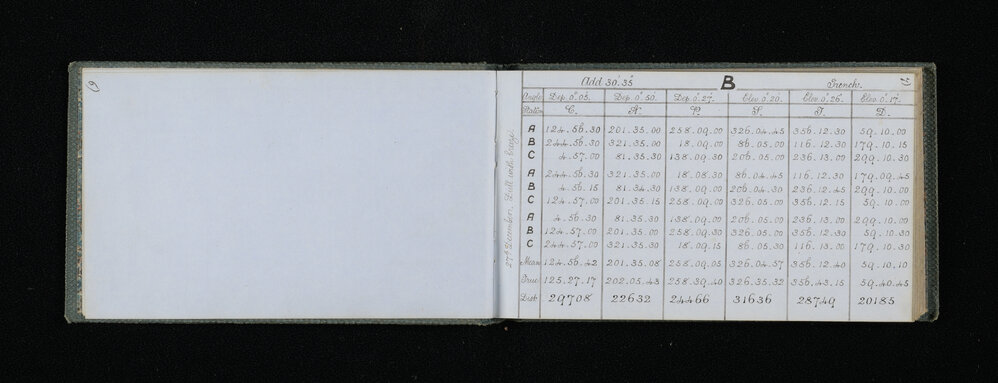 Add 30'.35" B Trench.
Angle Dep. 0°.05. Dep. 0°.50. Dep. 0°.27. Elev. 0°.20. Elev. 0°.26. Elev. 0°.17.
Station C. A. P. S. T. D.
A 124.56.30 201.35.00 258.09.00 326.04.45 356.12.30 59.10.00
B 244.56.30 321.35.00 18.09.00 86.05.00 116.12.30 179.10.15
C 4.57.00 81.35.30 138.09.30 206.05.00 236.13.00 299.10.30
A 244.56.30 321.35.00 18.08.30 86.04.45 116.12.30 179.09.45
B 4.56.15 81.34.30 138.09.00 206.04.30 236.12.45 299.10.00
C 124.57.00 201.35.15 258.09.00 326.05.00 356.12.15 59.10.00
A 4.56.30 81.35.30 138.09.00 206.05.00 236.13.00 299.10.00
B 124.57.00 201.35.00 258.09.30 326.05.00 356.12.30 59.10.30
C 244.57.00 321.35.30 18.09.15 86.05.30 116.13.00 179.10.30
Mean 124.56.42 201.35.08 258.09.05 326.04.57 356.12.40 59.10.10
True 125.27.17 202.05.43 258.39.40 326.35.32 356.43.15 59.40.45
Dist 29708 22632 24466 31636 28749 20185
27th December. Dull with